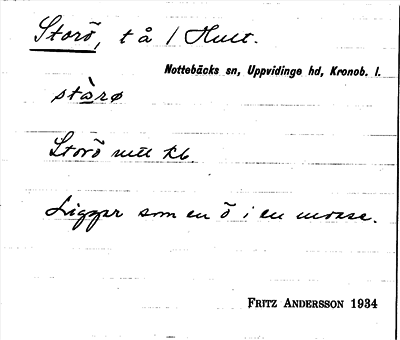 Storö, t å 1 Hult.
Nottebäcks sn, Uppvidinge hd, Kronob. l.
stòrø
Storö utt kb.
Ligger som en ö i en mosse.
FRITZ ANDERSSON 1934